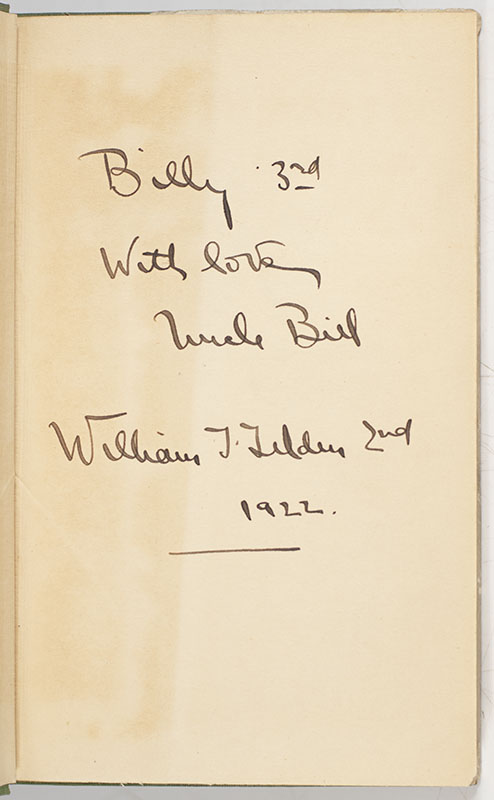 Billy 3rd
With love
Uncle Bill
William T. Tilden 2nd
1922.